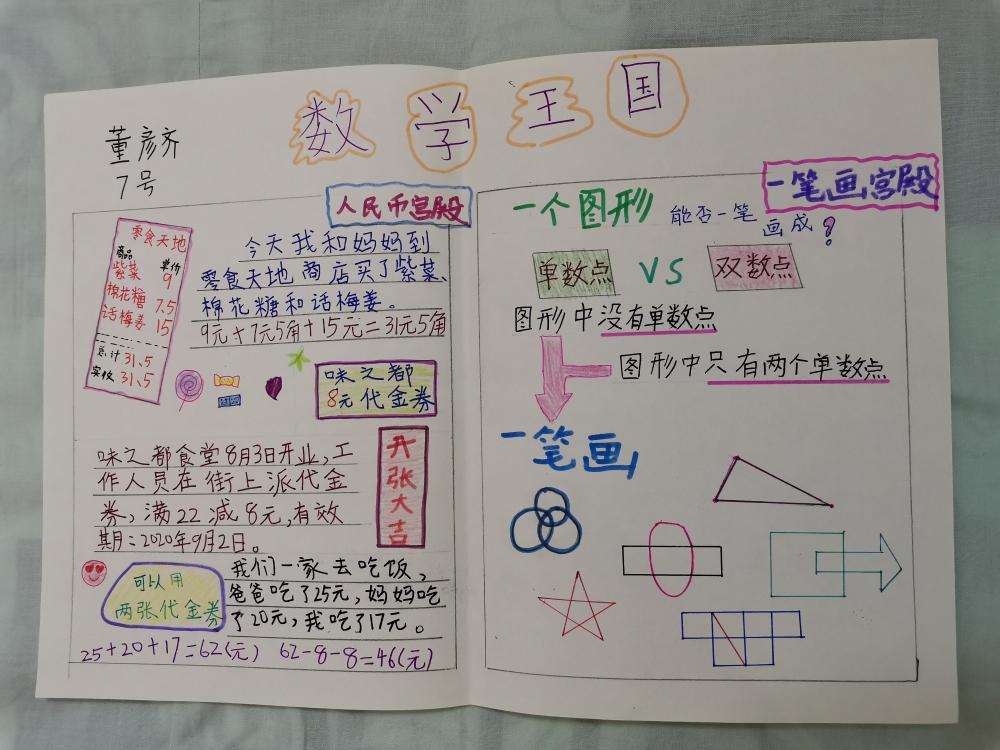 数学王国
董彦齐
7号
人民币宫殿
零食天地
商品 单价
紫菜 9
棉花糖 7.5
话梅姜 15
总计 31.5
实收 31.5
今天我和妈妈到
零食天地商店买了紫菜、
棉花糖和话梅姜。
9元+7元5角+15元=31元5角
味之都
8元代金券
味之都食堂8月3日开业,工
作人员在街上派代金
券,满22减8元,有效
期:2020年9月2日。
开张大吉
可以用
两张代金券
我们一家去吃饭,
爸爸吃了25元,妈妈吃
了20元,我吃了17元。
25+20+17=62(元) 62-8-8=46(元)
一笔画宫殿
一个图形 能否一笔
画成?
单数点 VS 双数点
图形中没有单数点
图形中只有两个单数点
一笔画